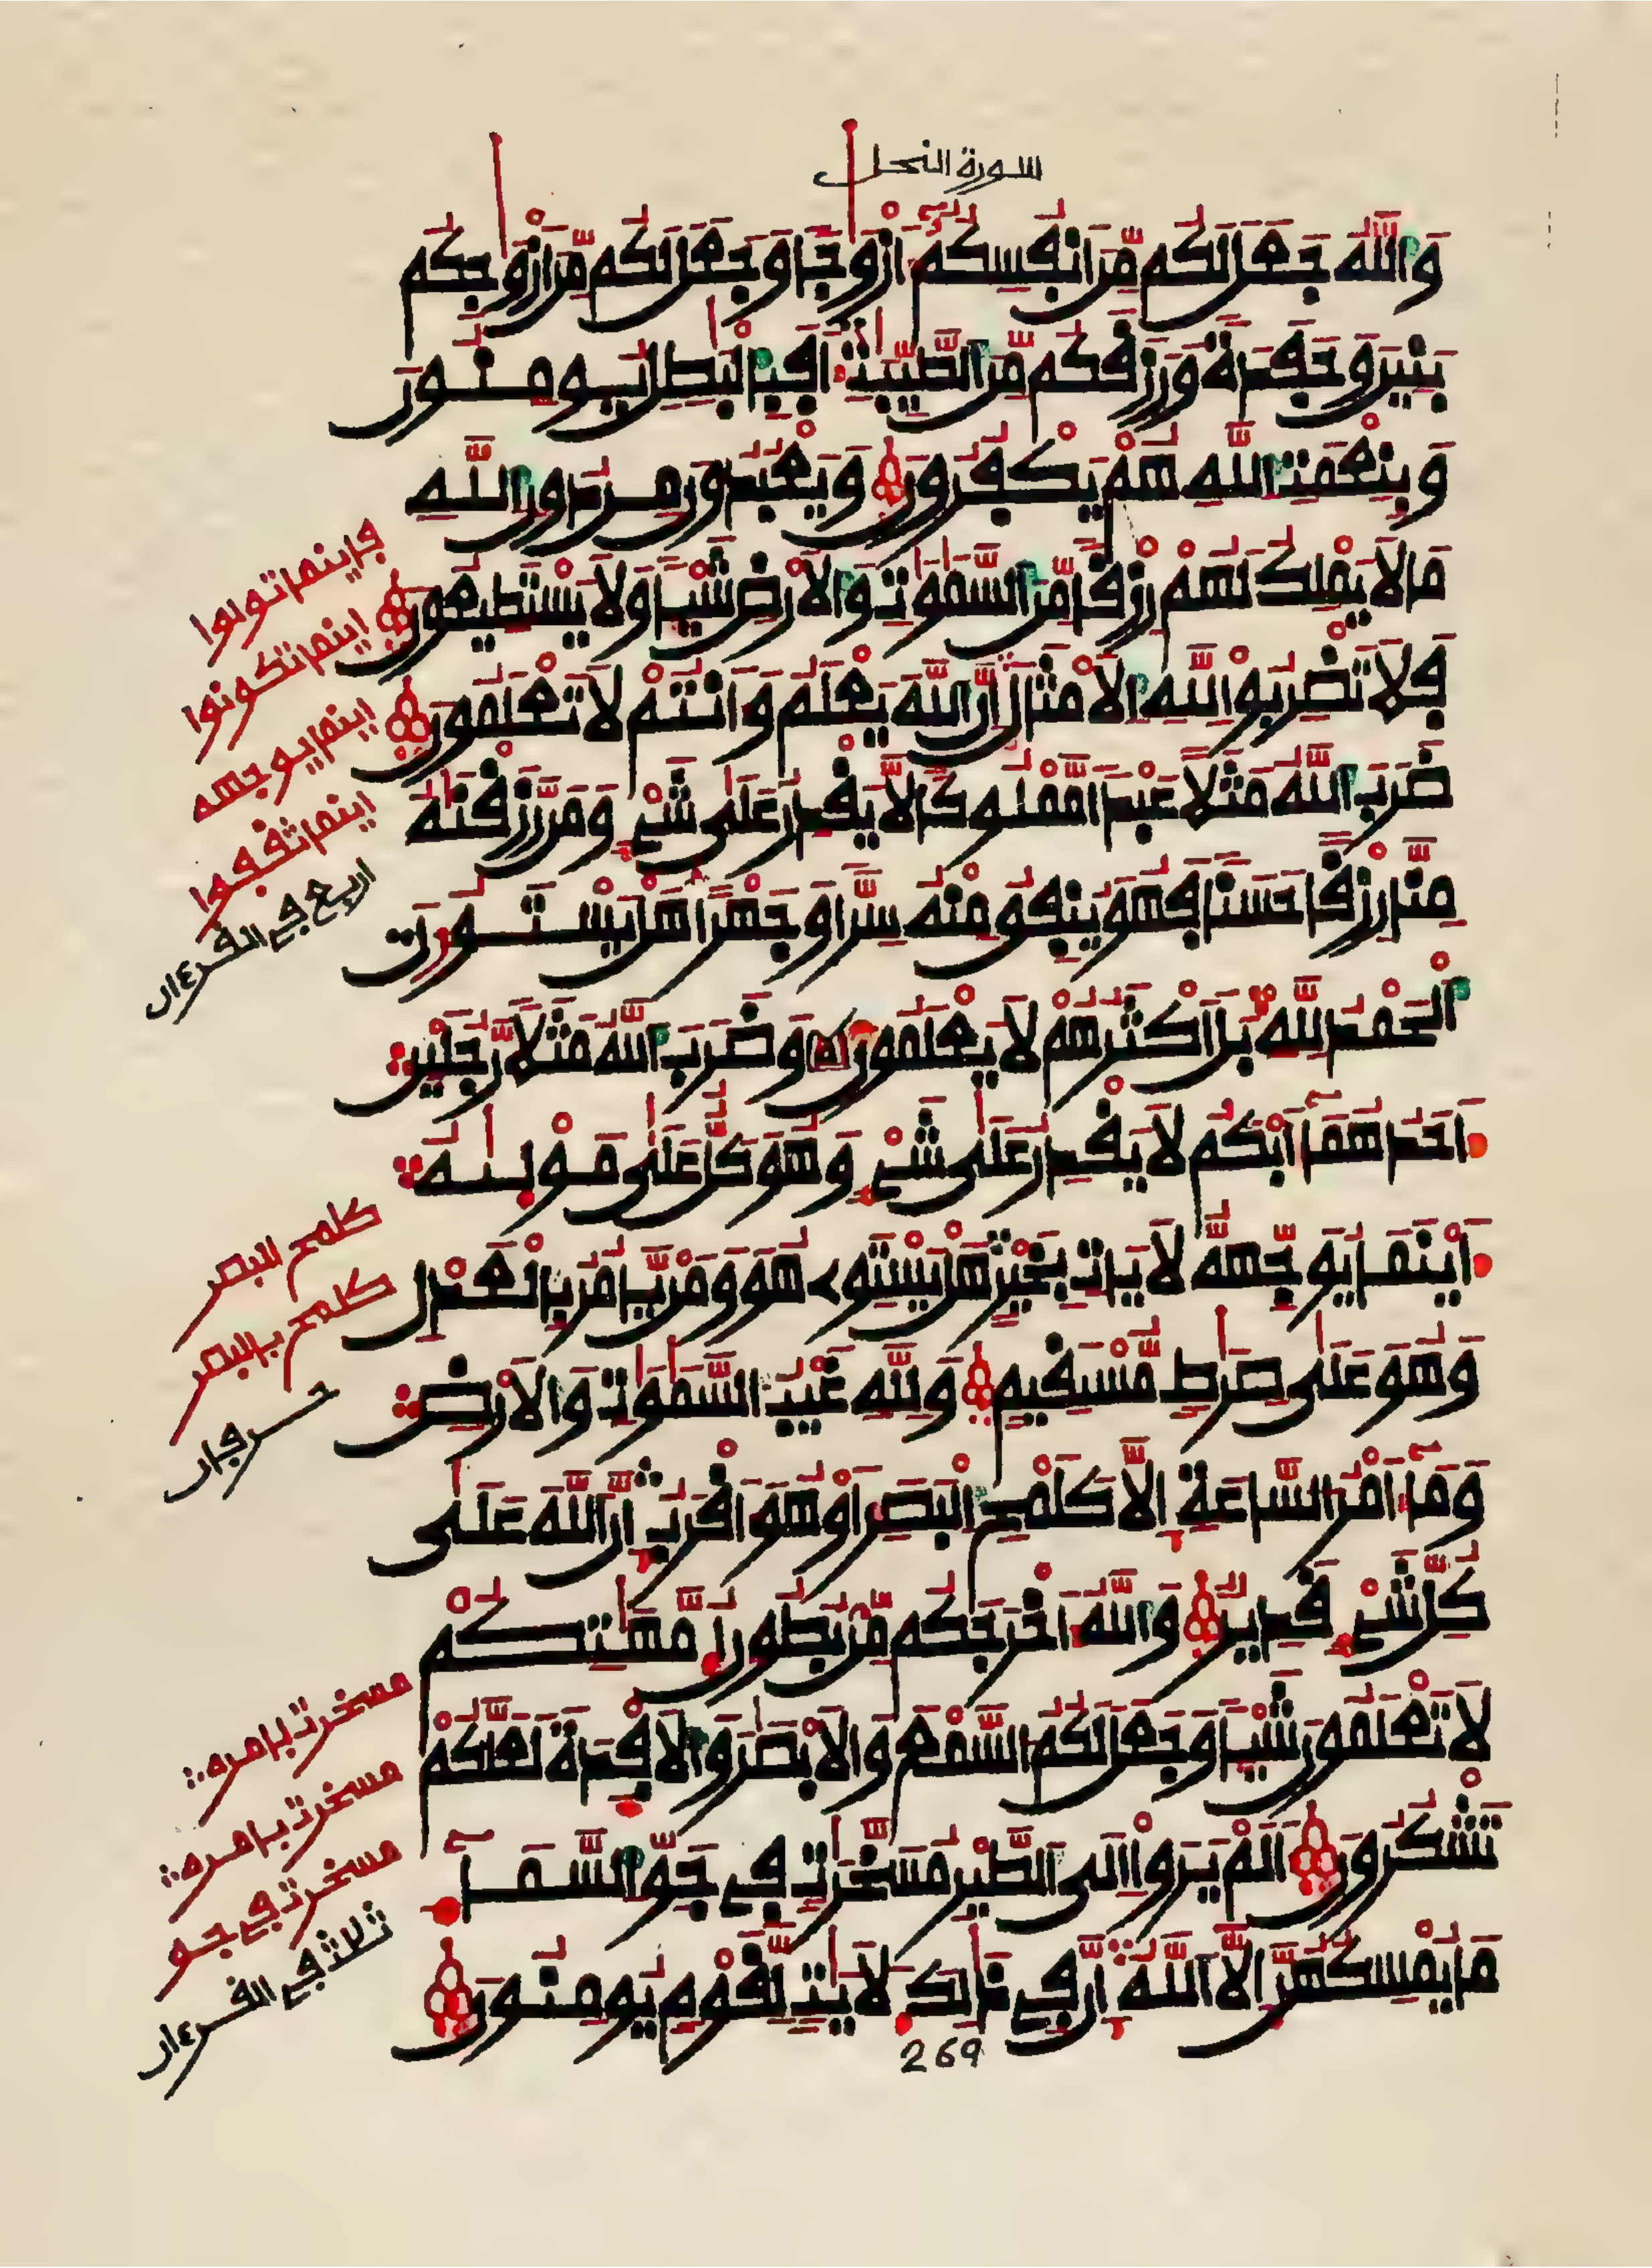 سورة النحل
وَاللَّهُ جَعَلَ لَكُم مِّنَ انفُسِكُمُۥٓ أَزْوَٰجًا وَجَعَلَ لَكُم مِّنَ ازْوَٰجِكُم
بَنِينَ وَحَفَدَةً وَرَزَقَكُم مِّنَ الطَّيِّبَٰتِ أَفَبِالْبَٰطِلِ يُومِنُونَ
وَبِنِعْمَتِ اللَّهِ هُمْ يَكْفُرُونَ وَيَعْبُدُونَ مِن دُونِ اللَّهِ
مَا لَا يَمْلِكُ لَهُمْ رِزْقًا مِّنَ السَّمَٰوَٰتِ وَالَارْضِ شَيْـًٔا وَلَا يَسْتَطِيعُونَ
فَلَا تَضْرِبُوا لِلهِ الَامْثَالَ إِنَّ اللَّهَ يَعْلَمُ وَأَنتُمْ لَا تَعْلَمُونَ
ضَرَبَ اللَّهُ مَثَلًا عَبْدًا مَّمْلُوكًا لَّا يَقْدِرُ عَلَىٰ شَيْءٍ وَمَن رَّزَقْنَٰهُ
مِنَّا رِزْقًا حَسَنًا فَهُوَ يُنفِقُ مِنْهُ سِرًّا وَجَهْرًا هَلْ يَسْتَوُونَ
الْحَمْدُ لِلهِ بَلَ اَكْثَرُهُمْ لَا يَعْلَمُونَ وَضَرَبَ اللَّهُ مَثَلًا رَّجُلَيْنِ
أَحَدُهُمَآ أَبْكَمُ لَا يَقْدِرُ عَلَىٰ شَيْءٍ وَهُوَ كَلٌّ عَلَىٰ مَوْلَىٰهُ
أَيْنَمَا يُوَجِّههُّ لَا يَاتِ بِخَيْرٍ هَلْ يَسْتَوِے هُوَ وَمَن يَّامُرُ بِالْعَدْلِ
وَهُوَ عَلَىٰ صِرَٰطٍ مُّسْتَقِيمٍ وَلِلهِ غَيْبُ السَّمَٰوَٰتِ وَالَارْضِ
وَمَآ أَمْرُ السَّاعَةِ إِلَّا كَلَمْحِ الْبَصَرِ أَوْ هُوَ أَقْرَبُ إِنَّ اللَّهَ عَلَىٰ
كُلِّ شَيْءٍ قَدِيرٌ وَاللَّهُ أَخْرَجَكُم مِّنۢ بُطُونِ أُمَّهَٰتِكُمْ
لَا تَعْلَمُونَ شَيْـًٔا وَجَعَلَ لَكُمُ السَّمْعَ وَالَابْصَٰرَ وَالَافْـِٕدَةَ لَعَلَّكُمْ
تَشْكُرُونَ أَلَمْ يَرَوِا اِلَى الطَّيْرِ مُسَخَّرَٰتٍ فِي جَوِّ السَّمَآءِ
مَا يُمْسِكُهُنَّ إِلَّا اللَّهُ إِنَّ فِي ذَٰلِكَ لَأٓيَٰتٍ لِّقَوْمٍ يُومِنُونَ
269
فاينما تولوا
اينما تكونوا
اينما يوجهه
اينما ثقفوا
اربع في القرءان
كلمح البصر
كلمح بالبصر
حرفان
مسخرت بامره
مسخرت بامره
مسخرت في جو
ثلاث في القرءان